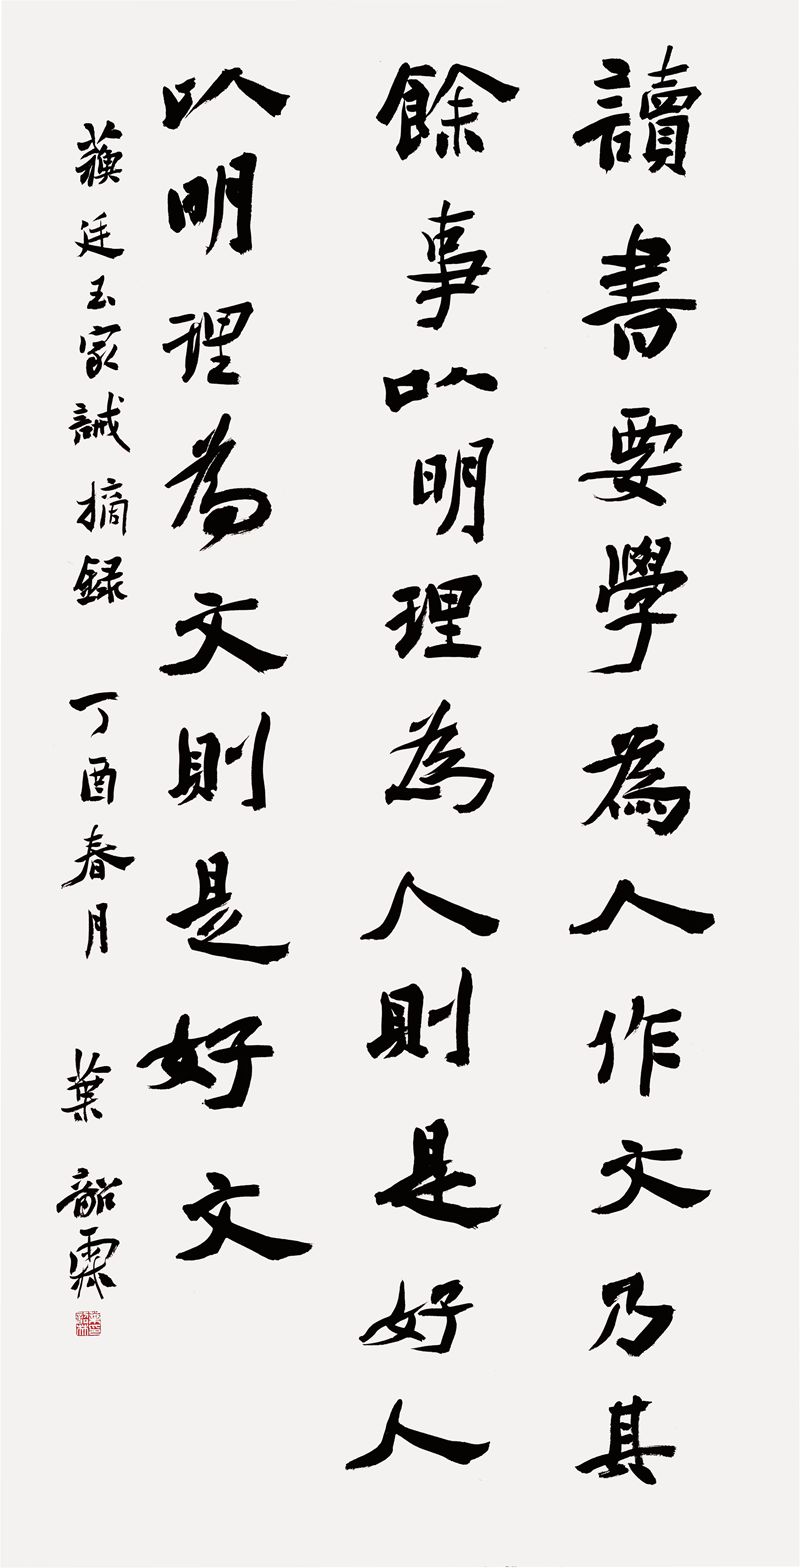 讀書要學為人作文乃其
餘事以明理為人則是好人
以明理為文則是好文
蘓廷玉家誡摘録 丁酉春月 葉韶霖